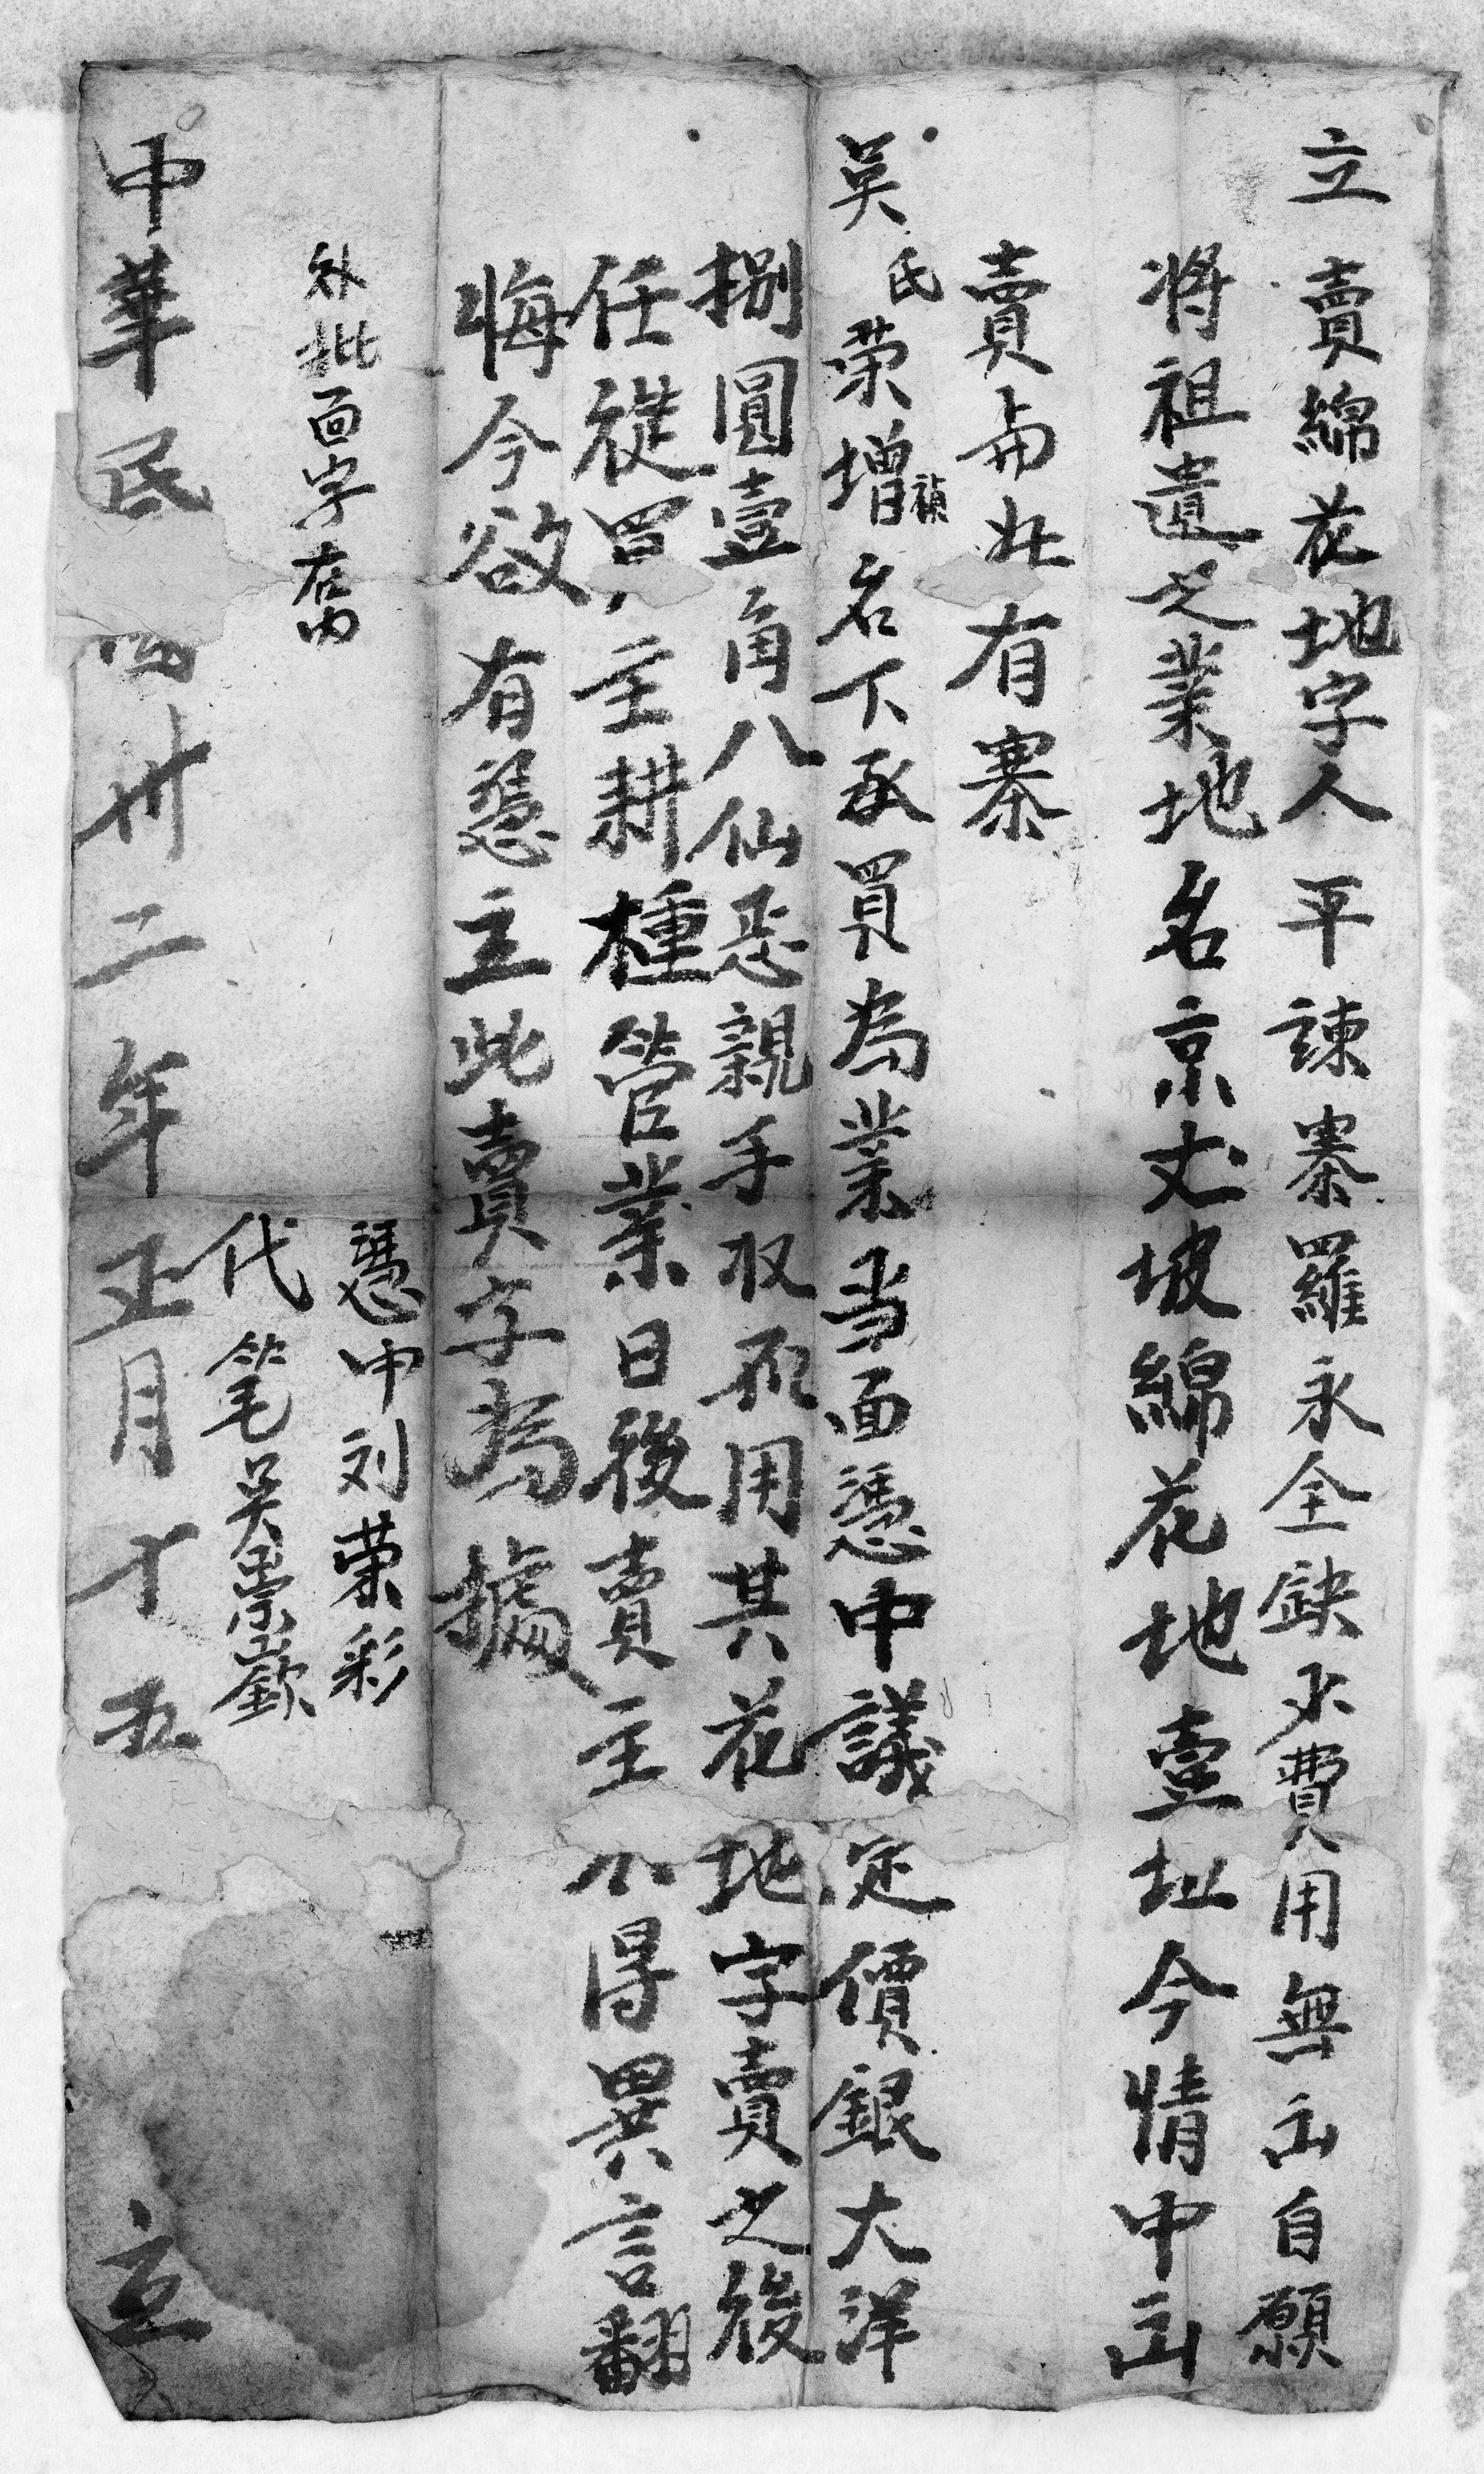 立賣綿花地字人平諫寨羅永全缺少費用無出自願
將祖遺之業地名京丈坡綿花地壹址今情中出
賣與此有寨
吳氏榮增禎名下承買為業当面憑中議定價銀大洋
捌圓壹角八仙恁親手收不用其花地字賣之後
任從買主耕種管業日後賣主不得異言翻
悔今欲有憑主此賣字為據
外批面字在內
憑中刘荣彩
代笔吳崇
中華民國卅二年正月十五 立